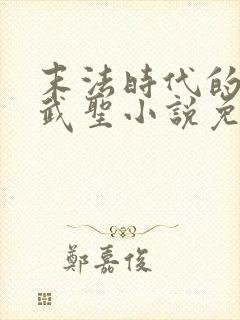 末法時代的
武聖小說免
鄭嘉俊